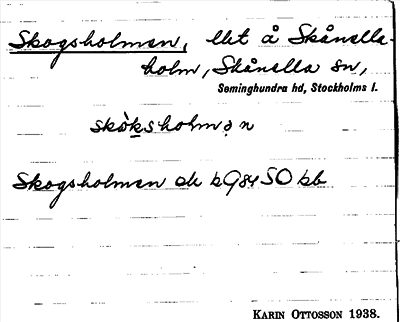 Skogsholmen, lht å Skånella-
holm, Skånella sn,
Seminghundra hd, Stockholms l.
skò̀ksholmən
Skogsholmen ek bG84SO bb
Karin Ottosson 1938.